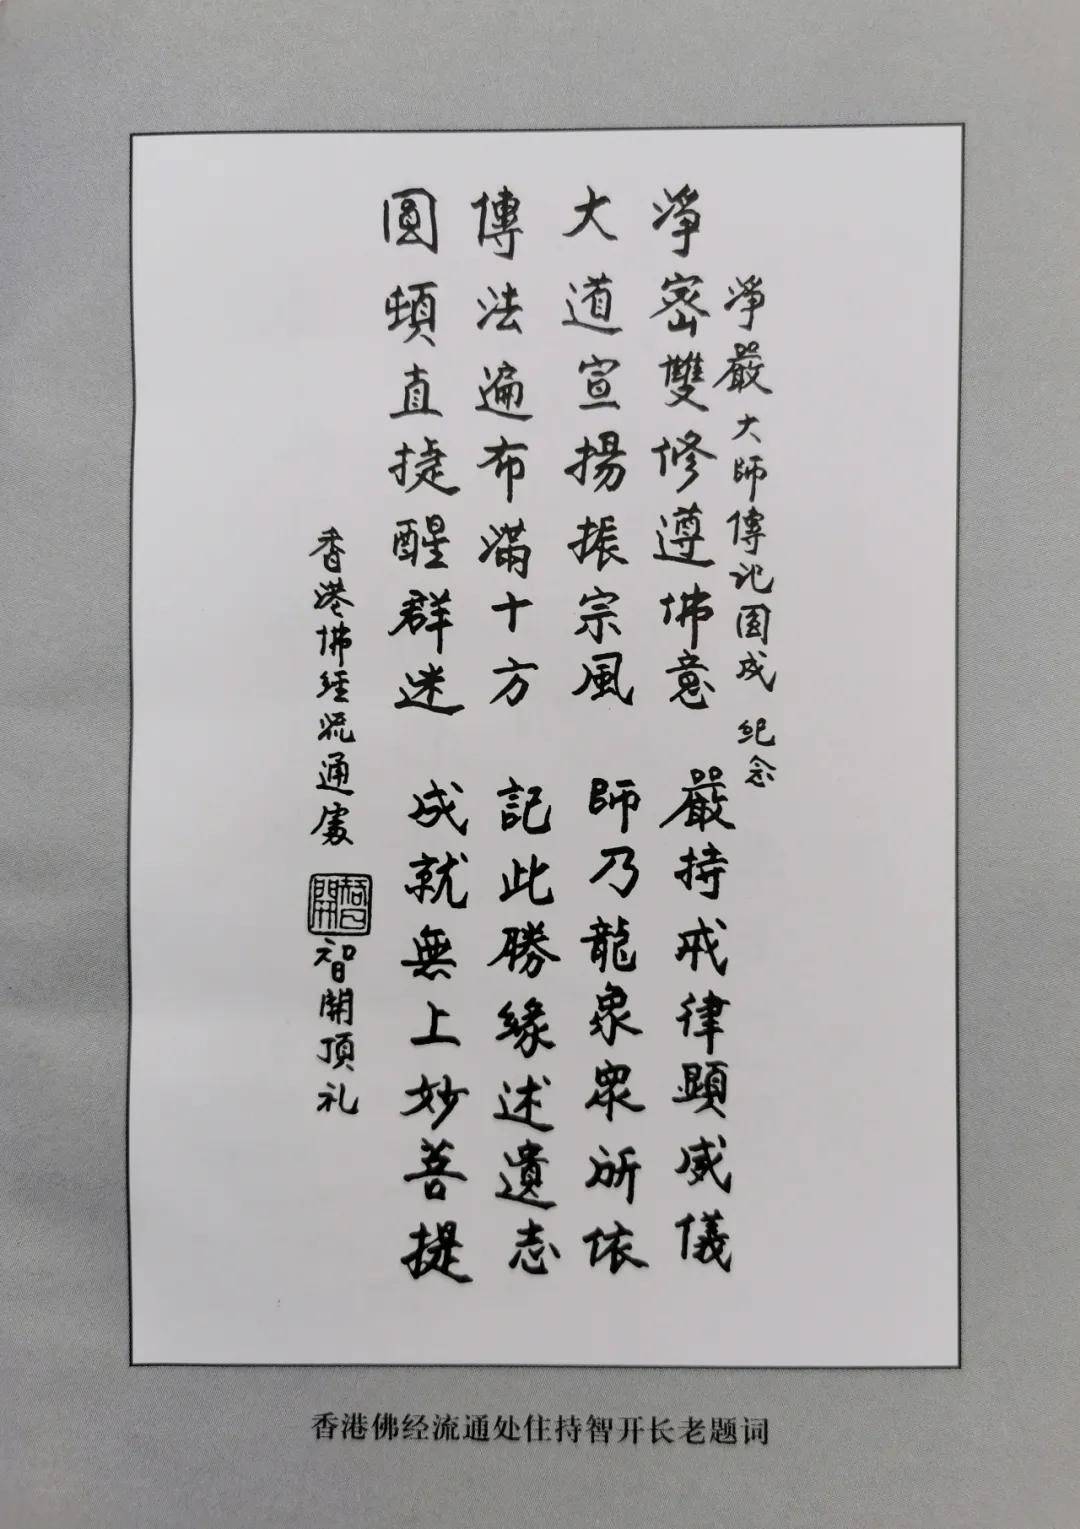 淨嚴大師傳记圆成 纪念
淨密雙修遵佛意 嚴持戒律顯威儀
大道宣揚振宗風 師乃龍泉眾所依
傳法遍布滿十方 記此勝緣述遺志
圓頓直捷醒群迷 成就無上妙菩提
香港佛經流通處 智開頂礼
智開
香港佛经流通处住持智开长老题词